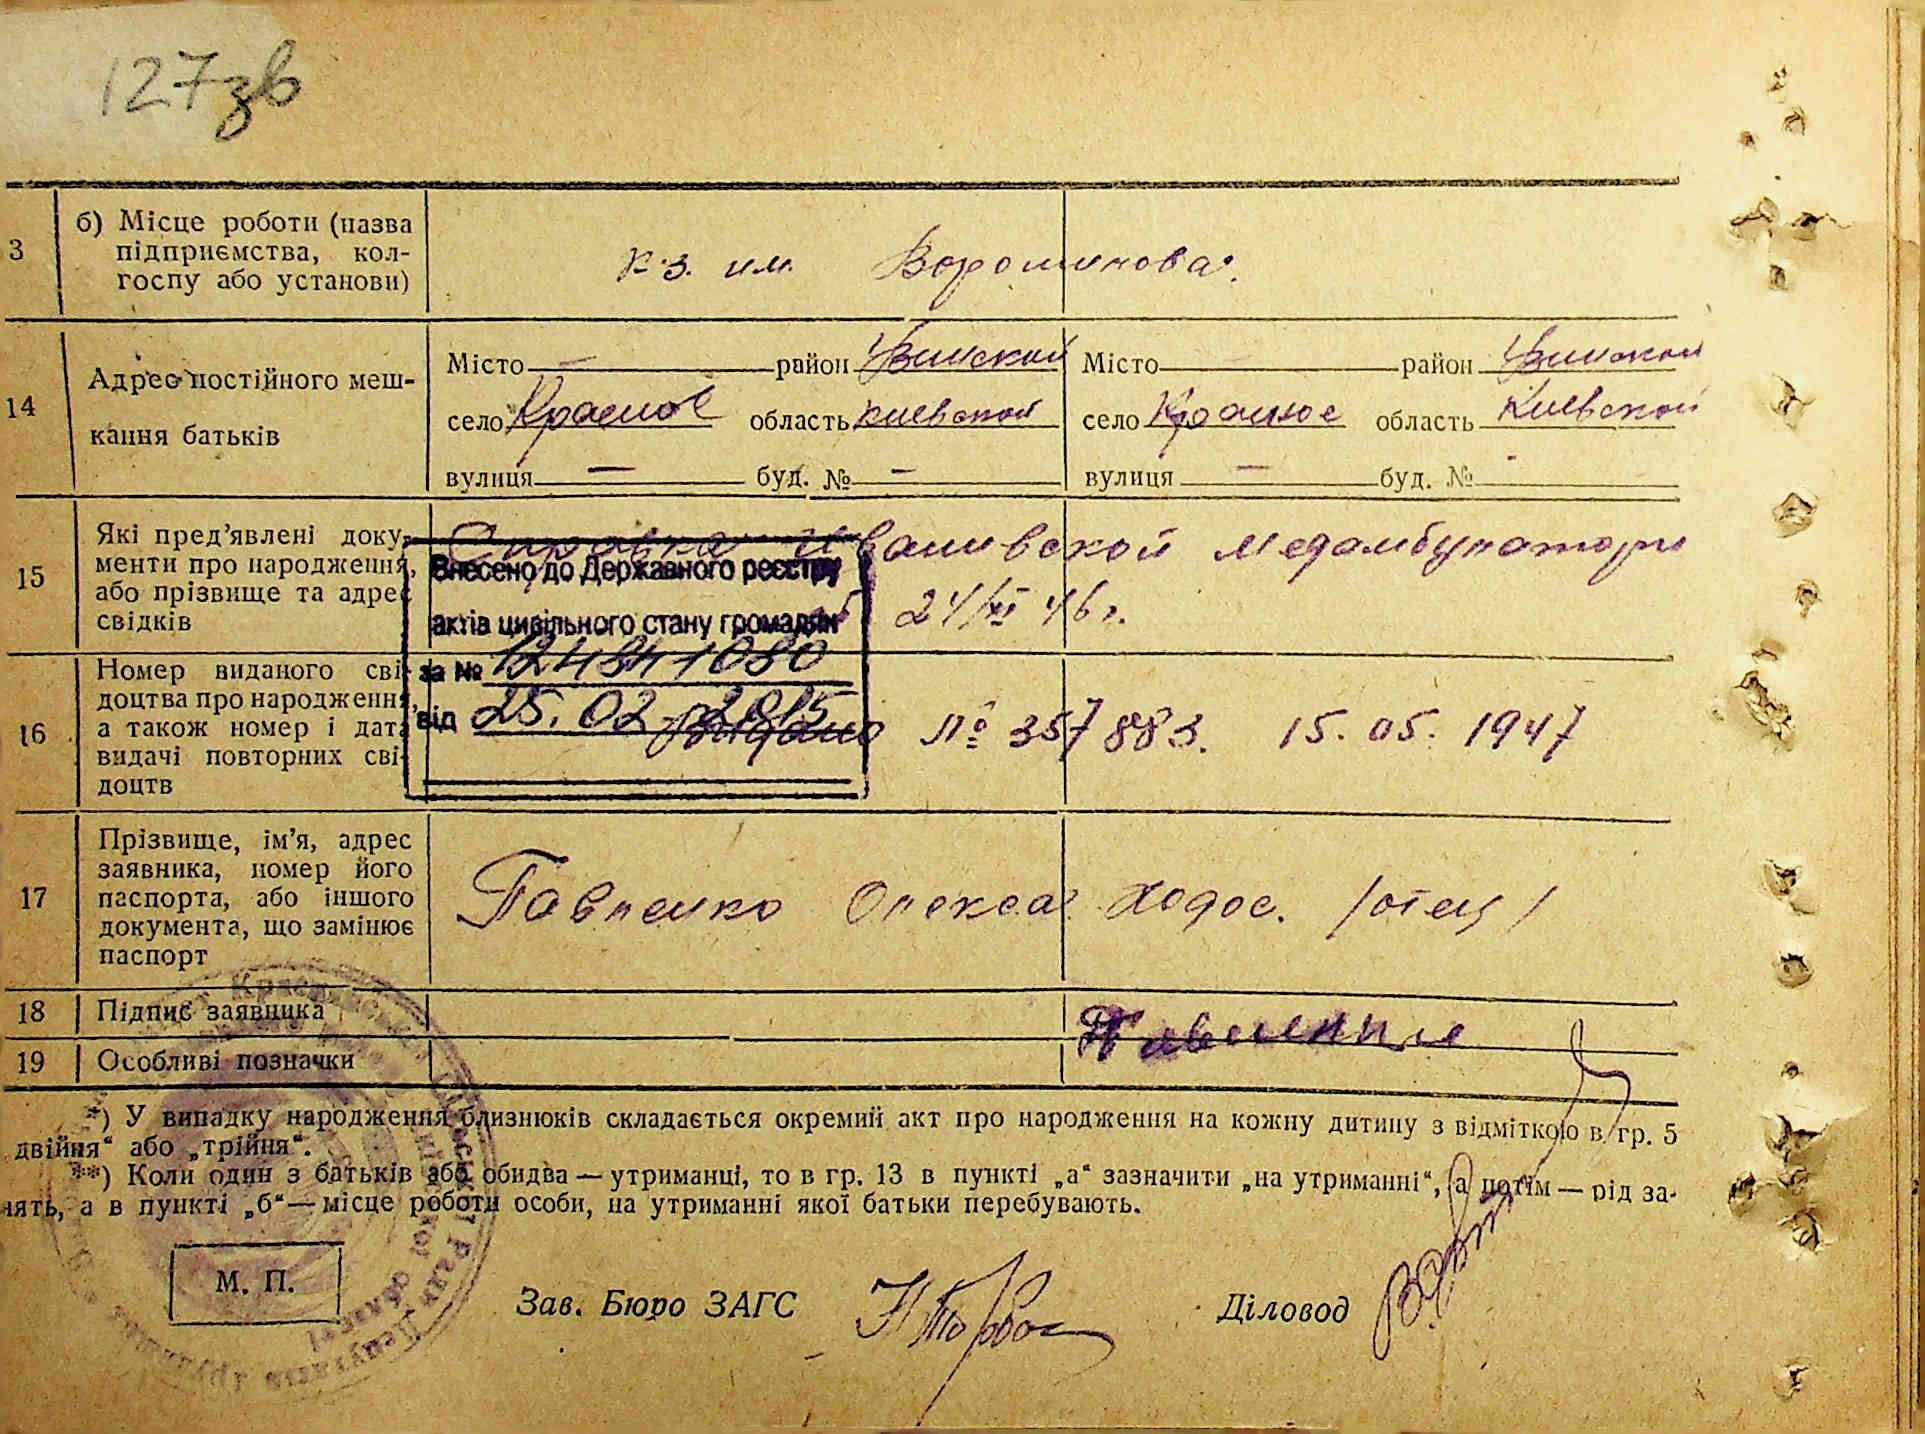 127зв
3
б) Місце роботи (назва
підприємства, кол-
госпу або установи)
к-з. им. Ворошилова.
14
Адрес постійного меш-
кання батьків
Місто — район
село Красное область Киевской
вулиця — буд. № —
Місто район
село Красное область Киевской
вулиця — буд. № -
15
Які пред’явлені доку-
менти про народження,
або прізвище та адрес
свідків
Справка Иванивской Медамбулатории
24/XI 46 г.
Внесено до Державного реєстру
актів цивільного стану громадян
за №
від 25.02.2015
16
Номер виданого сві-
доцтва про народження,
а також номер і дата
видачі повторних сві-
доцтв
Выдано № 357883. 15.05.1947
17
Прізвище, ім’я, адрес
заявника, номер його
паспорта, або іншого
документа, що замінює
паспорт
Павленко Олекса Ходос. /отец/
18
Підпис заявника
19
Особливі позначки
*) У випадку народження близнюків складається окремий акт про народження на кожну дитину з відміткою в гр. 5
двійня“ або „трійня“.
**) Коли один з батьків або обидва — утриманці, то в гр. 13 в пункті „а“ зазначити „на утриманні“, а потім — рід за-
нять, а в пункті „б“ — місце роботи особи, на утриманні якої батьки перебувають.
М. П.
Зав. Бюро ЗАГС
Діловод